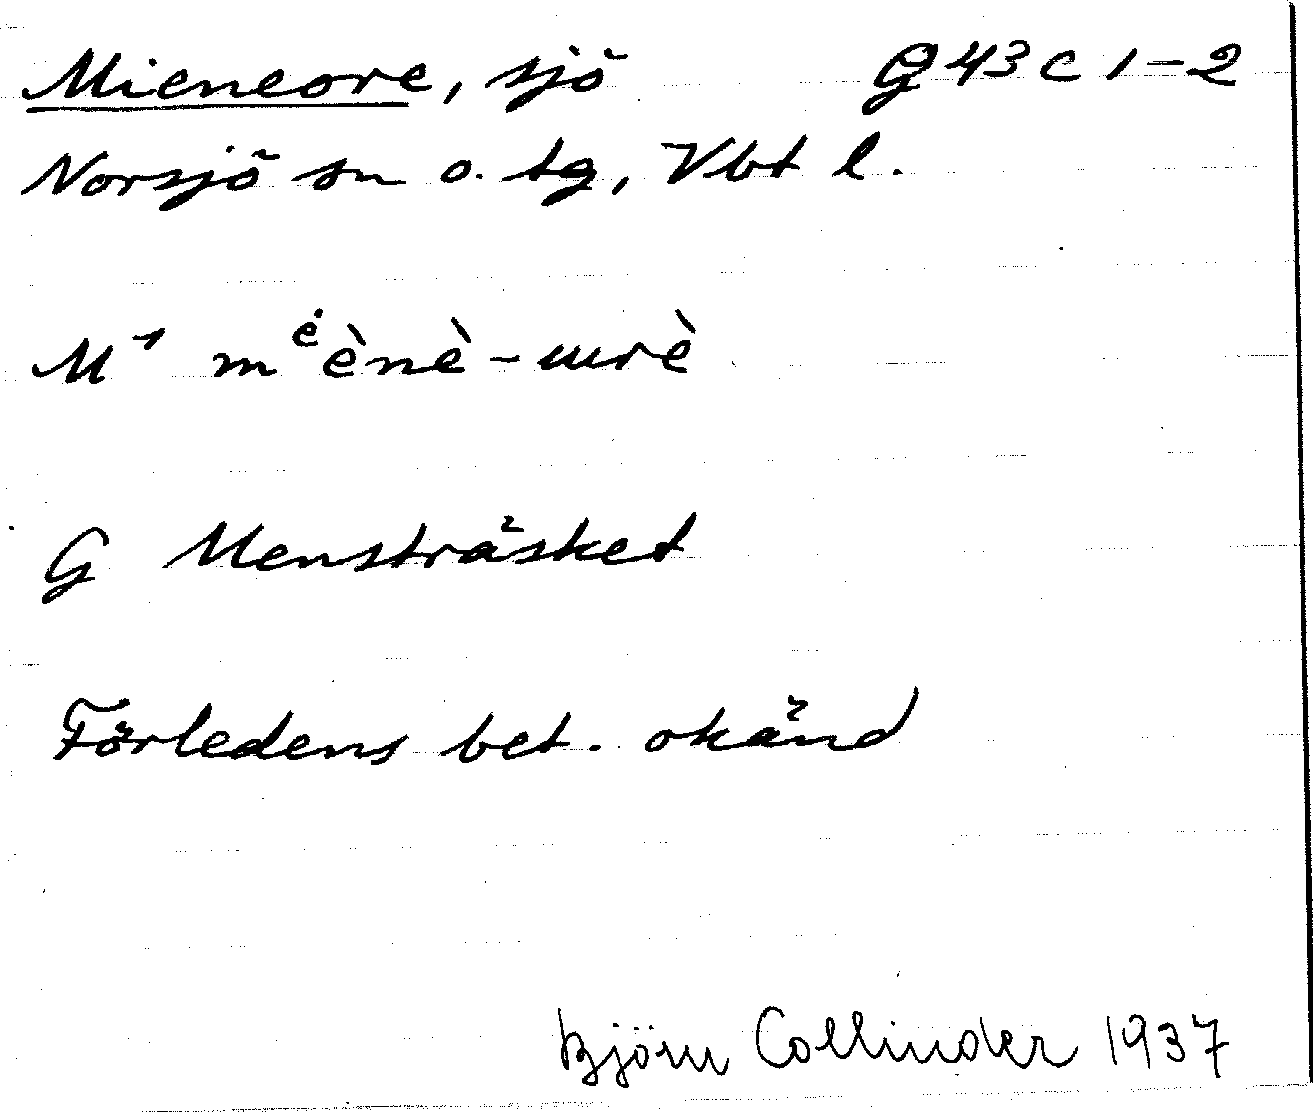 Mieneore, sjö G 43 c 1-2
Norsjö sn o. tg, Vbt l.
M¹ mᵉ̇ènè-ɯrè
G Mensträsket
Förledens bet. okänd
Björn Collinder 1937